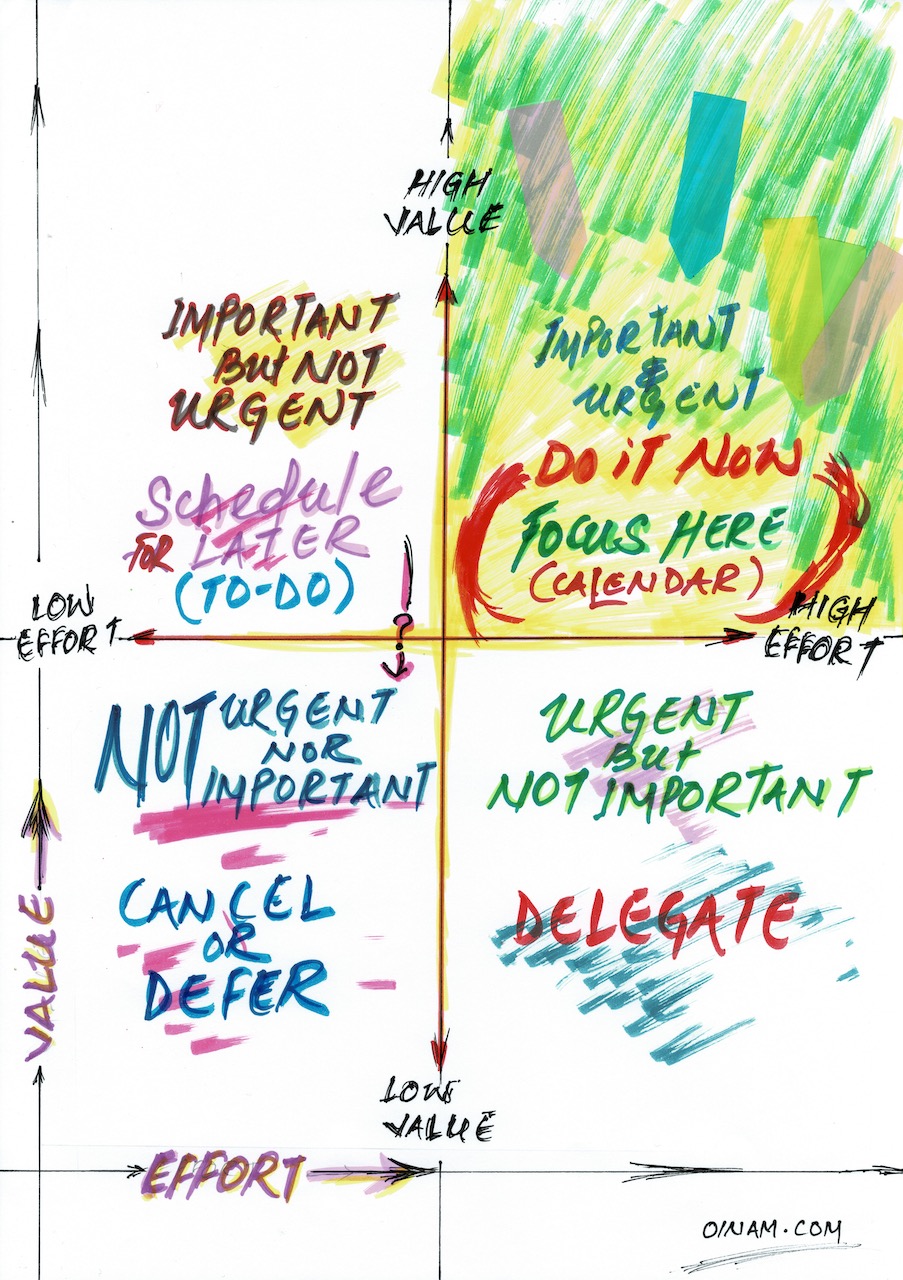 HIGH
VALUE
IMPORTANT
BUt NOT
URGENT
Schedule
FOR LATER
(TO-DO)
IMPORTANT
&
URGENT
DO iT NOW
FOCUS HERE
(CALENDAR)
LOW
EFFORT
?
HIGH
EFFORT
NOT URGENT
NOR
IMPORTANT
CANCEL
OR
DEFER
URGENT
BUt
NOT IMPORTANT
DELEGATE
VALUE
LOW
VALUE
EFFORT
OINAM.COM